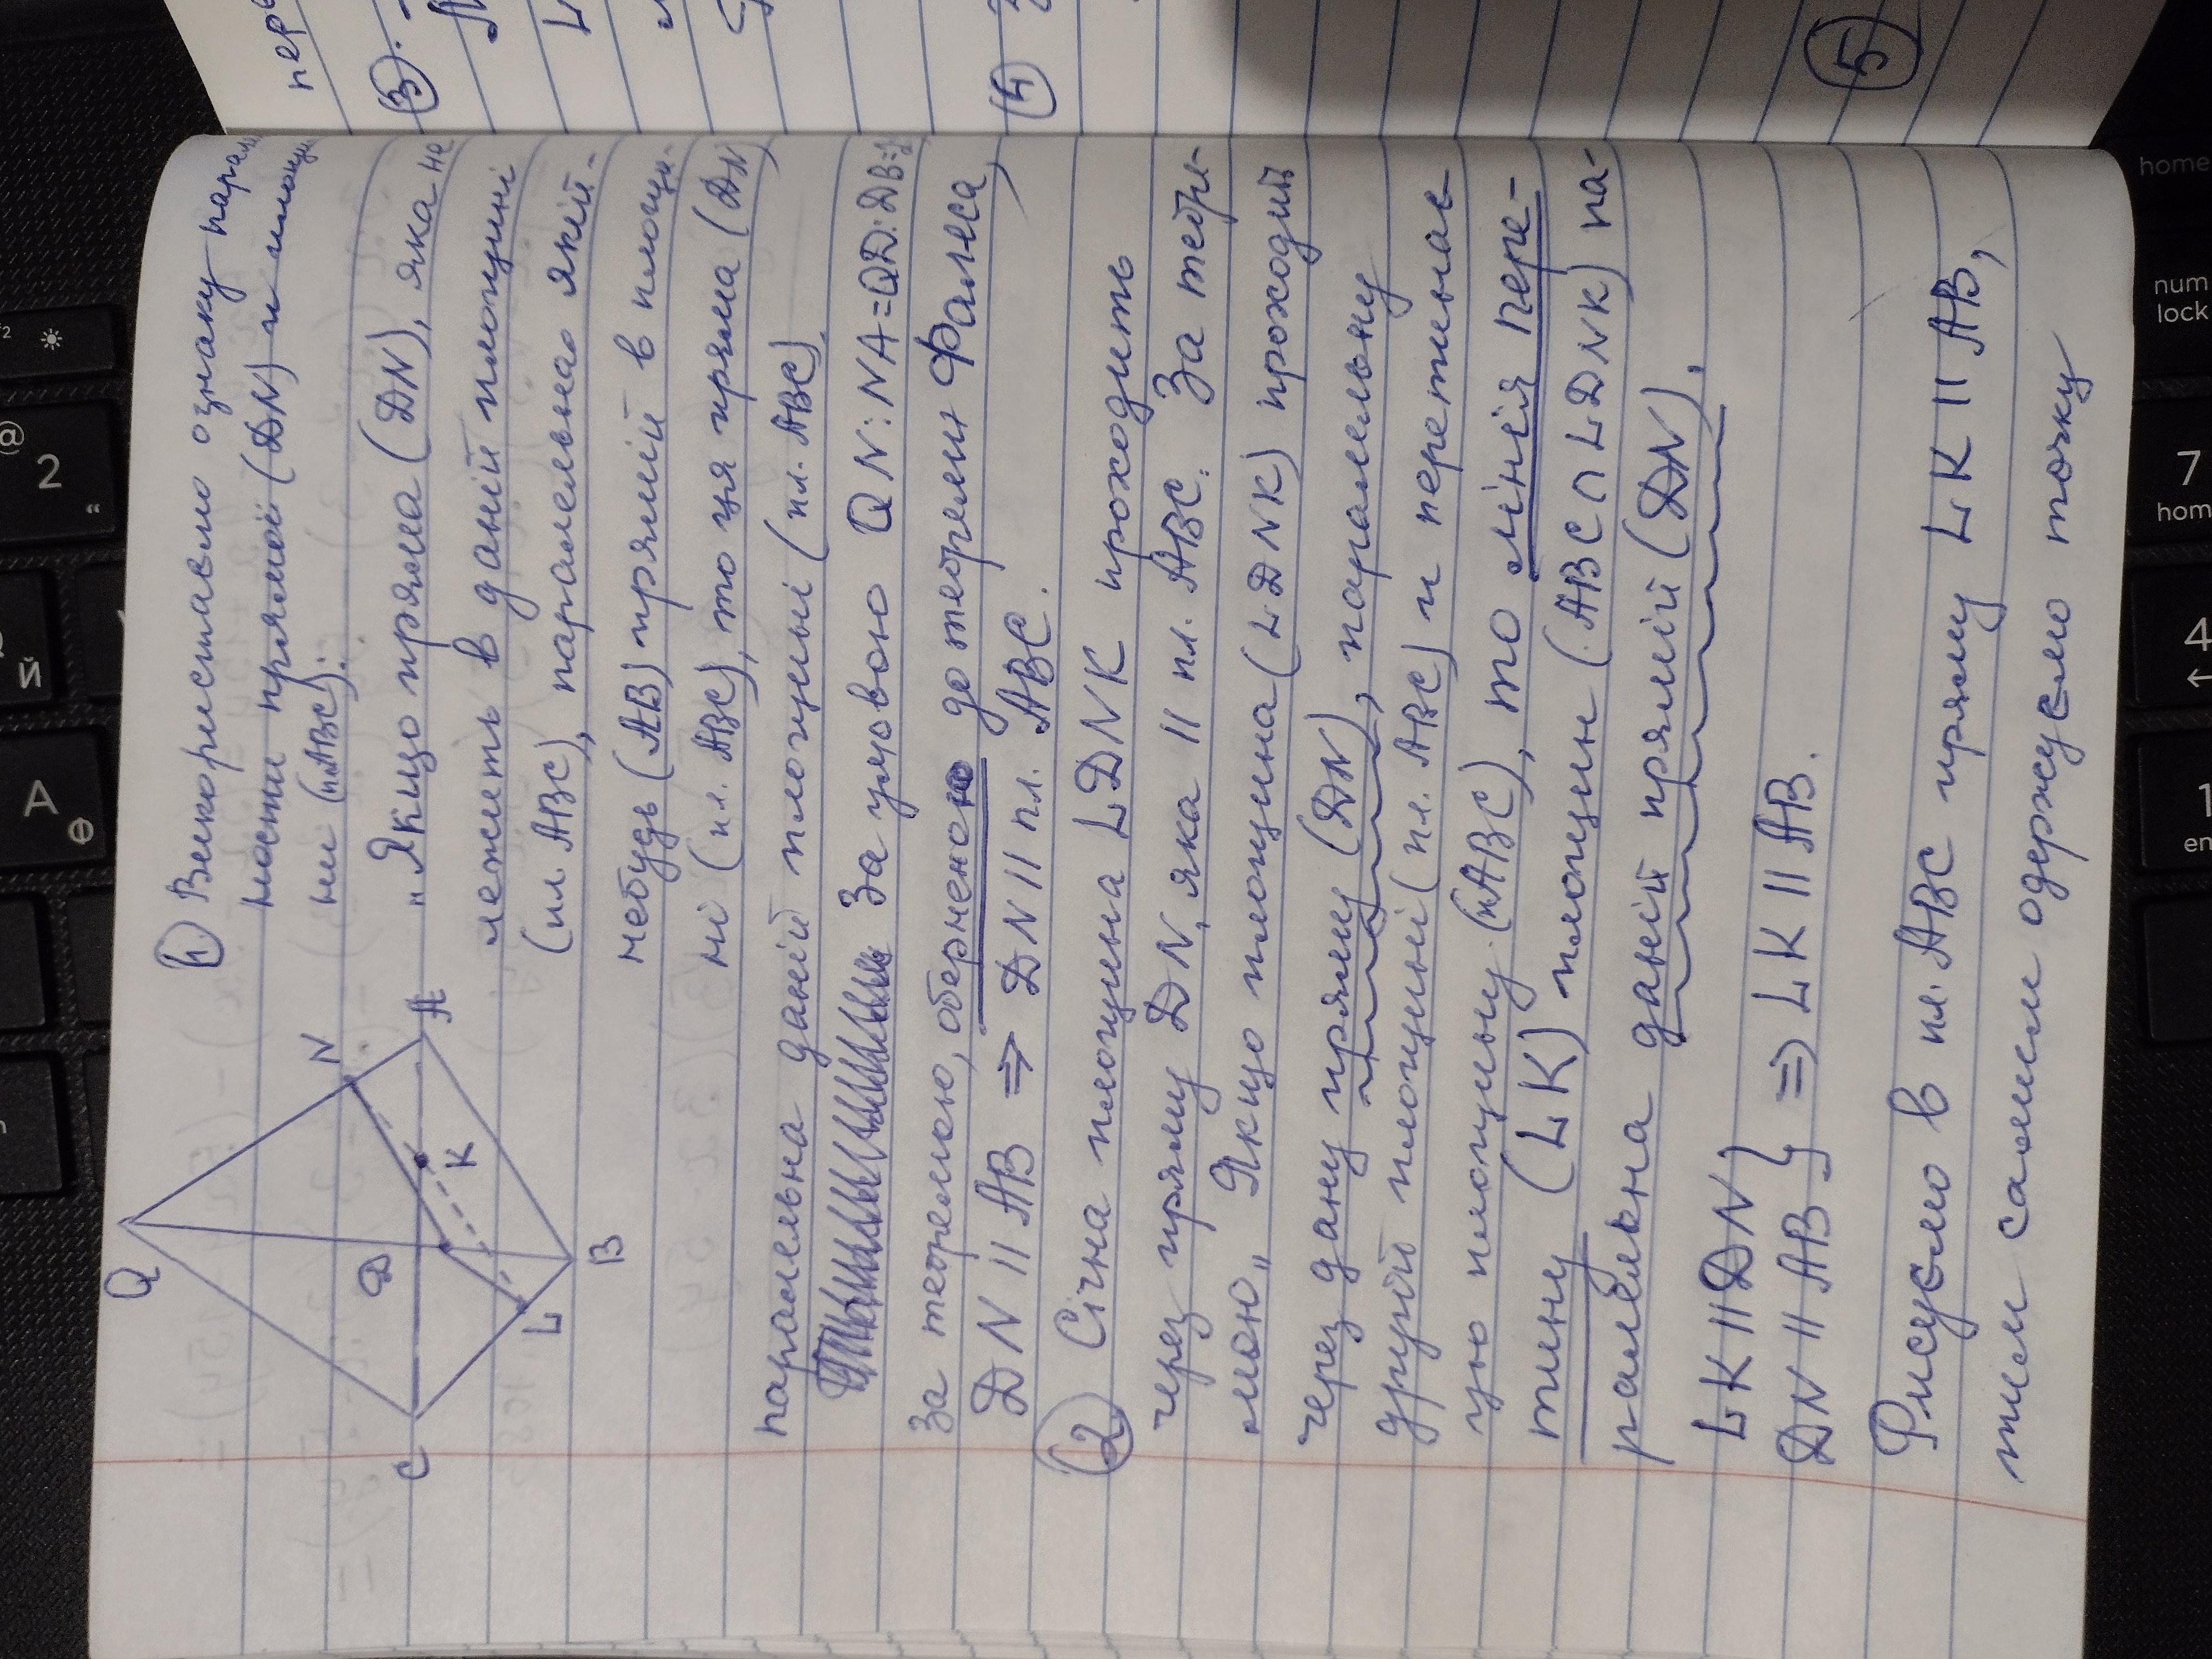 Q
N
A
D
K
C
L
B
① Використаємо ознаку парал
ності прямої (DN) и площи
ни (пл.ABC):
„Якщо пряма (DN), яка не
лежить в даній площині
(пл. ABC), паралельна якій-
небудь (AB) прямій в площи-
ні (пл. ABC), то ця пряма (DN)
паралельна даній площині (пл. ABC).
За умовою QN:NA=QD:DB
За теремою, оберненою до теореми Фалеса,
DN || AB ⇒ DN || пл. ABC.
② Січна площина LDNK проходить
через пряму DN, яка || пл. ABC. За теоре-
мою „Якщо площина (LDNK) проходить
через дану пряму (DN), паралельну
другій площині (пл. ABC) и перетинає
цю площину (пл.ABC), то лінія пере-
тину (LK) площин (ABC ∩ LDNK) па-
ралельна даній прямій (DN).
LK || DN
DN || AB } ⇒ LK || AB.
Рисуємо в пл. ABC пряму LK || AB,
тим самим одержуємо точку
пер
③
④
⑤
2
@
й
A
home
num
lock
7
hom
4
1
en